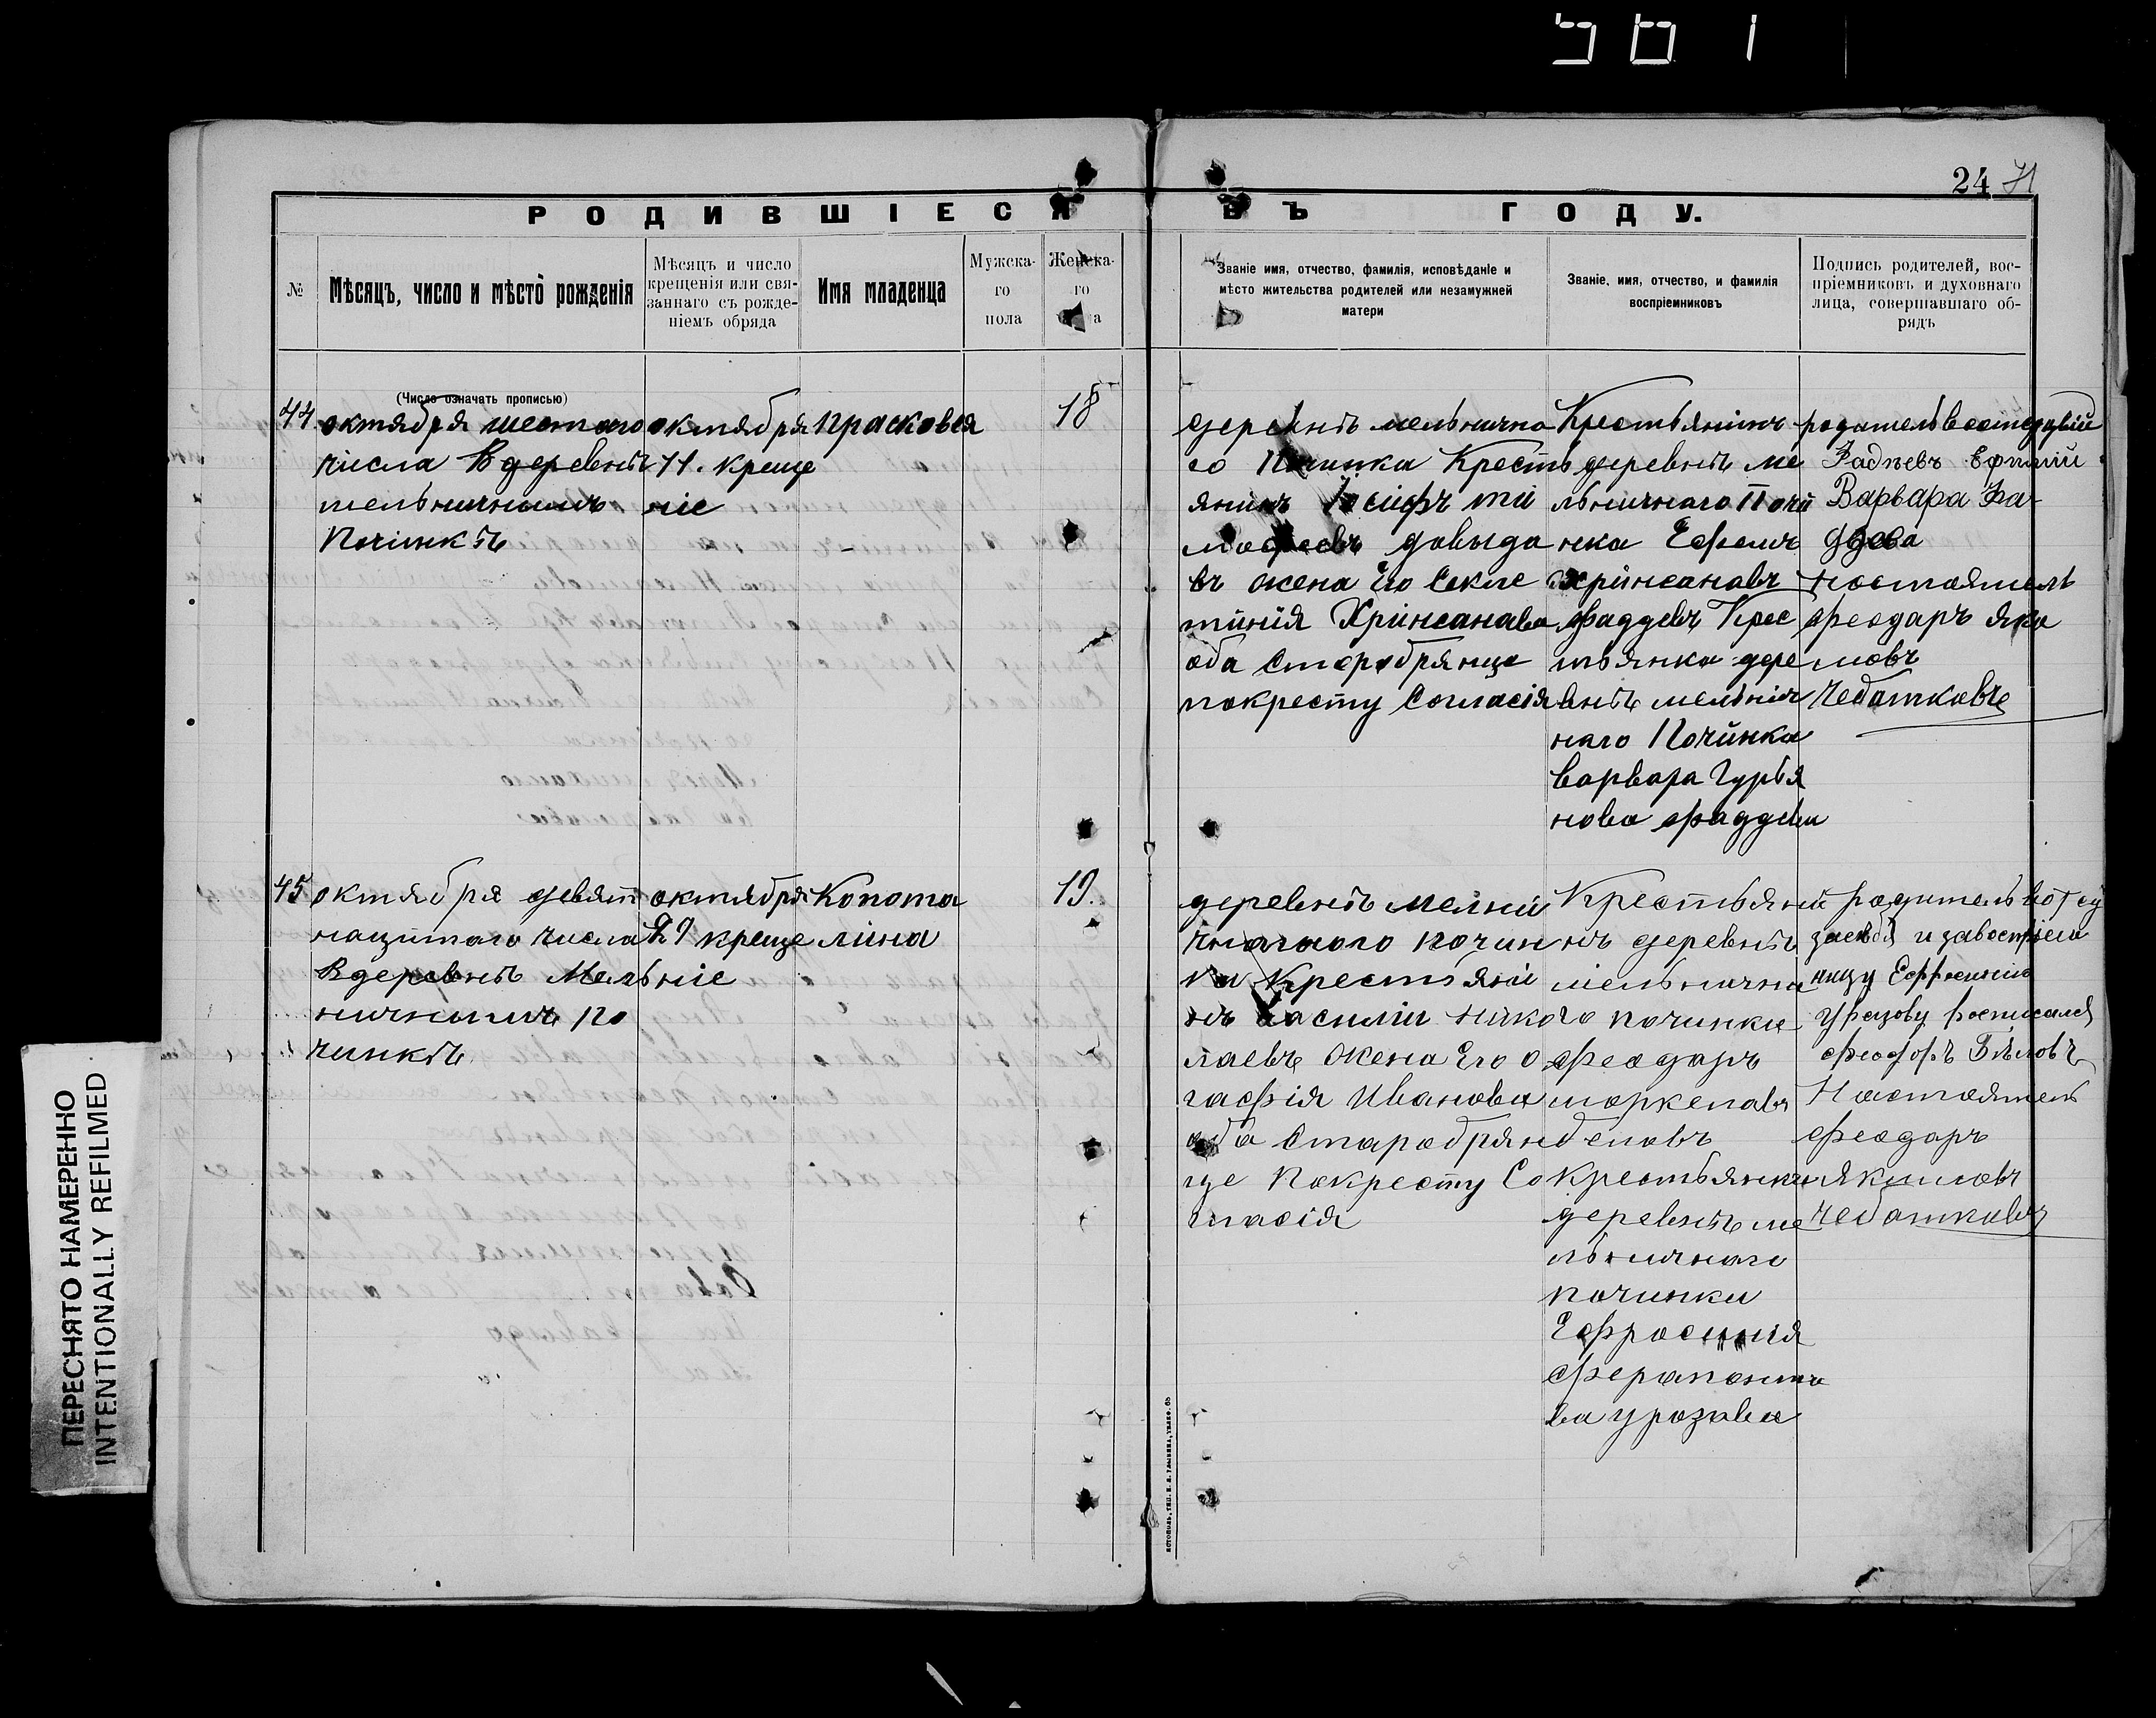 561
24 71
РОДИВШІЕСЯ ВЪ ГОДУ.
№
Мѣсяцъ, число и мѣсто рожденія
Мѣсяцъ и число
крещенія или свя-
заннаго съ рожде-
ніемъ обряда
Имя младенца
Мужска-
го
пола
Женска-
го
Званіе имя, отчество, фамилія, исповѣданіе и
мѣсто жительства родителей или незамужней
матери
Званіе, имя, отчество, и фамилія
воспріемниковъ
Подпись родителей, вос-
пріемниковъ и духовнаго
лица, совершавшаго об-
рядъ
(Число означать прописью)
44
октября шестого
числа Вдеревнѣ
мельничнымъ
Починкѣ
октября
11. креще
ніе
прасковея
18
деревнѣ мельнично
го Починка Кресть
янинъ Іосифъ ти
мофеевъ давыдо
въ жена Его Секле
тинія Хринсанава
оба старобрянце
покресту Согласія
Крестьянинъ
деревнѣ ме
льничнаго Почи
нка Ефемъ
хринсанавъ
фаддевъ Крес
тьянка дере
внѣ мельнич
наго Починка
варвара Гурья
нова фаддева
родитель
Фадѣевъ
Варвара Фа-
дѣева
Ностоятель
феодаръ яки
мовъ
Чебатковъ
45
октября девят
нацитаго числа
Вдеревнѣ Мель
ничнымъ по
чинкѣ
октября
29 креще
ніе
Копота
лина
19.
деревнѣ мелни
чнагного почин
ка Крестьяни
нъ василіи Нико
лаевъ Жена Его О
гафія Иванова
оба Старобрян
це Покресту Со
гласія
Крестьяни
нъ деревнѣ
мельнична
го починка
феодаръ
маркелавъ
беловъ
крестьянка
деревнѣ ме
льничнаго
починки
Ефросинія
ферапонта
ва уразава
родитель
засебя и завоспріем
ницу Ефросинію
Уразову росписался
феодоръ Бѣловъ
Настоятель
феодаръ
якимовъ
чебатковъ
ПЕРЕСНЯТО НАМЕРЕННО
INTENTIONALLY REFILMED